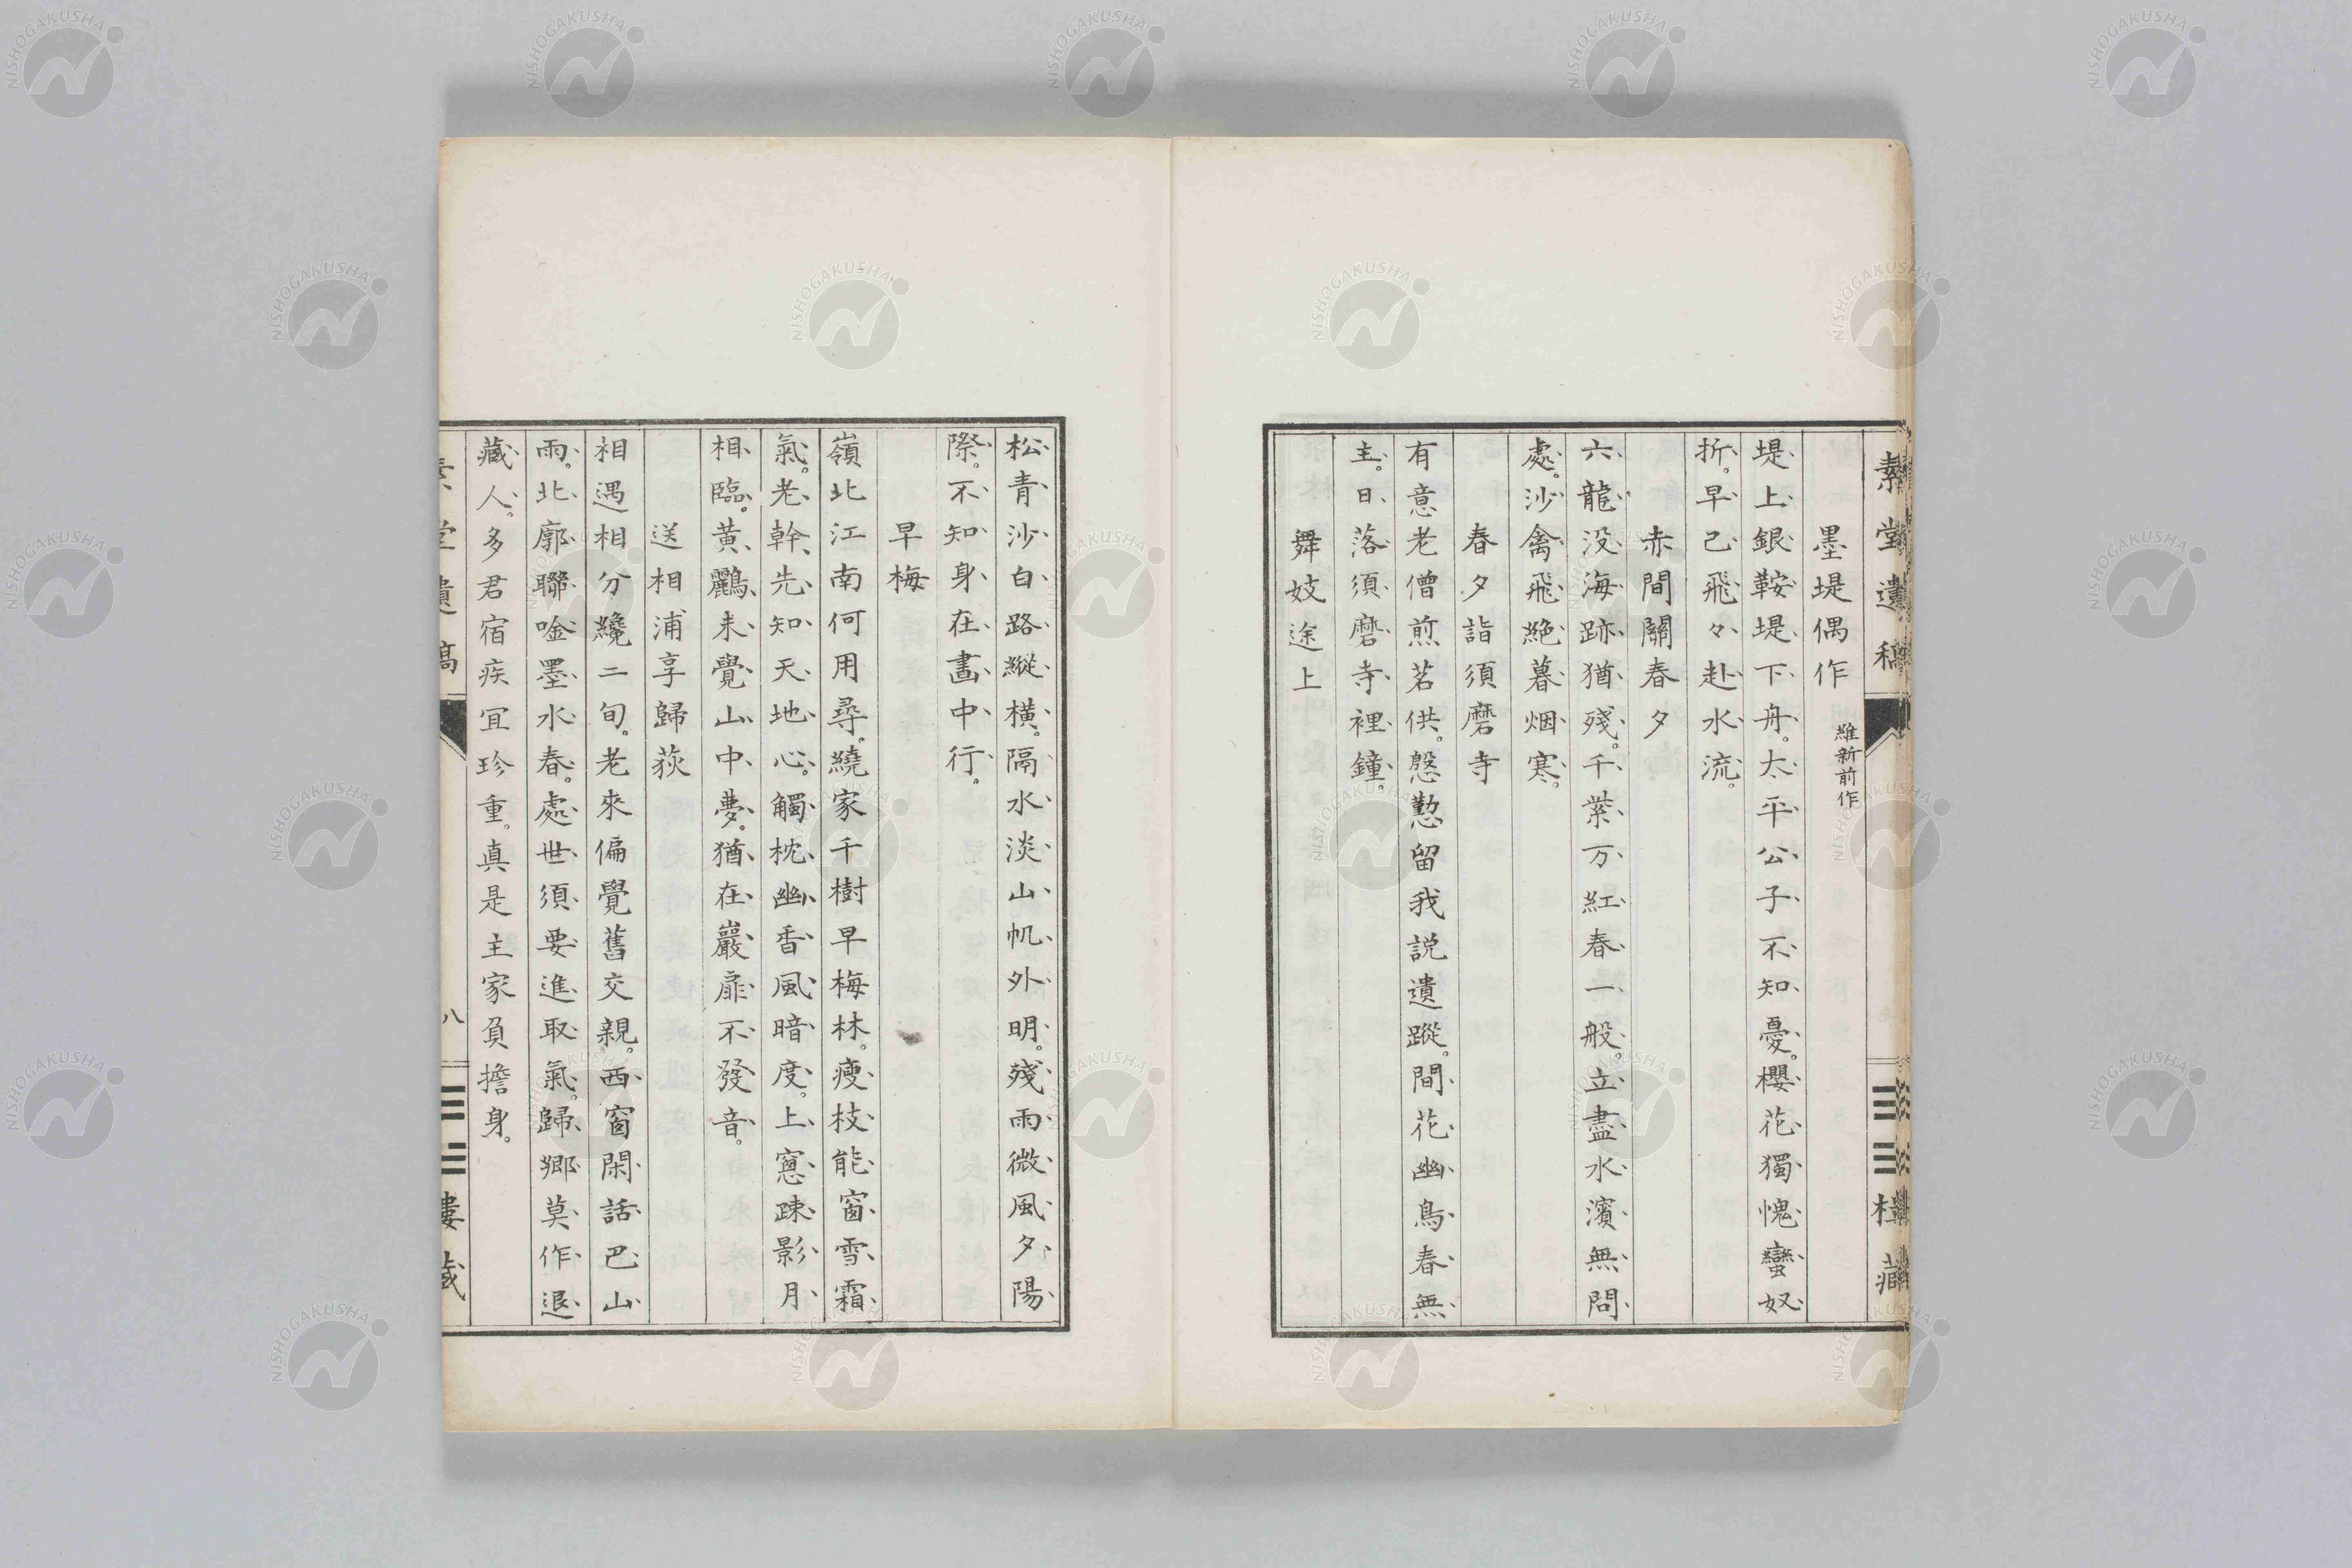 素堂遺稿
墨堤偶作 維新前作
堤上銀鞍堤下舟。太平公子不知憂。櫻花獨愧蠻奴
折。早已飛々赴水流。
赤間關春夕
六龍没海跡猶殘。千紫万紅春一般。立盡水濱無問
處。沙禽飛絶暮烟寒。
春夕詣須磨寺
有意老僧煎茗供。慇懃留我説遺蹤。間花幽鳥春無
主。日落須磨寺裡鐘。
舞妓途上
松青沙白路縱橫。隔水淡山帆外明。殘雨微風夕陽
際。不知身在畫中行。
早梅
嶺北江南何用尋。繞家千樹早梅林。瘦枝能窗雪霜
氣。老幹先知天地心。觸枕幽香風暗度。上窻疎影月
相臨。黄鸝未覺山中夢。猶在巖扉不發音。
送相浦享歸荻
相遇相分纔二旬。老來偏覺舊交親。西窗閑話巴山
雨。北廓聯唫墨水春。處世須要進取氣。歸郷莫作退
藏人。多君宿疾宜珍重。真是主家負擔身。
素堂遺稿
八
樓藏
NISHOGAKUSHA